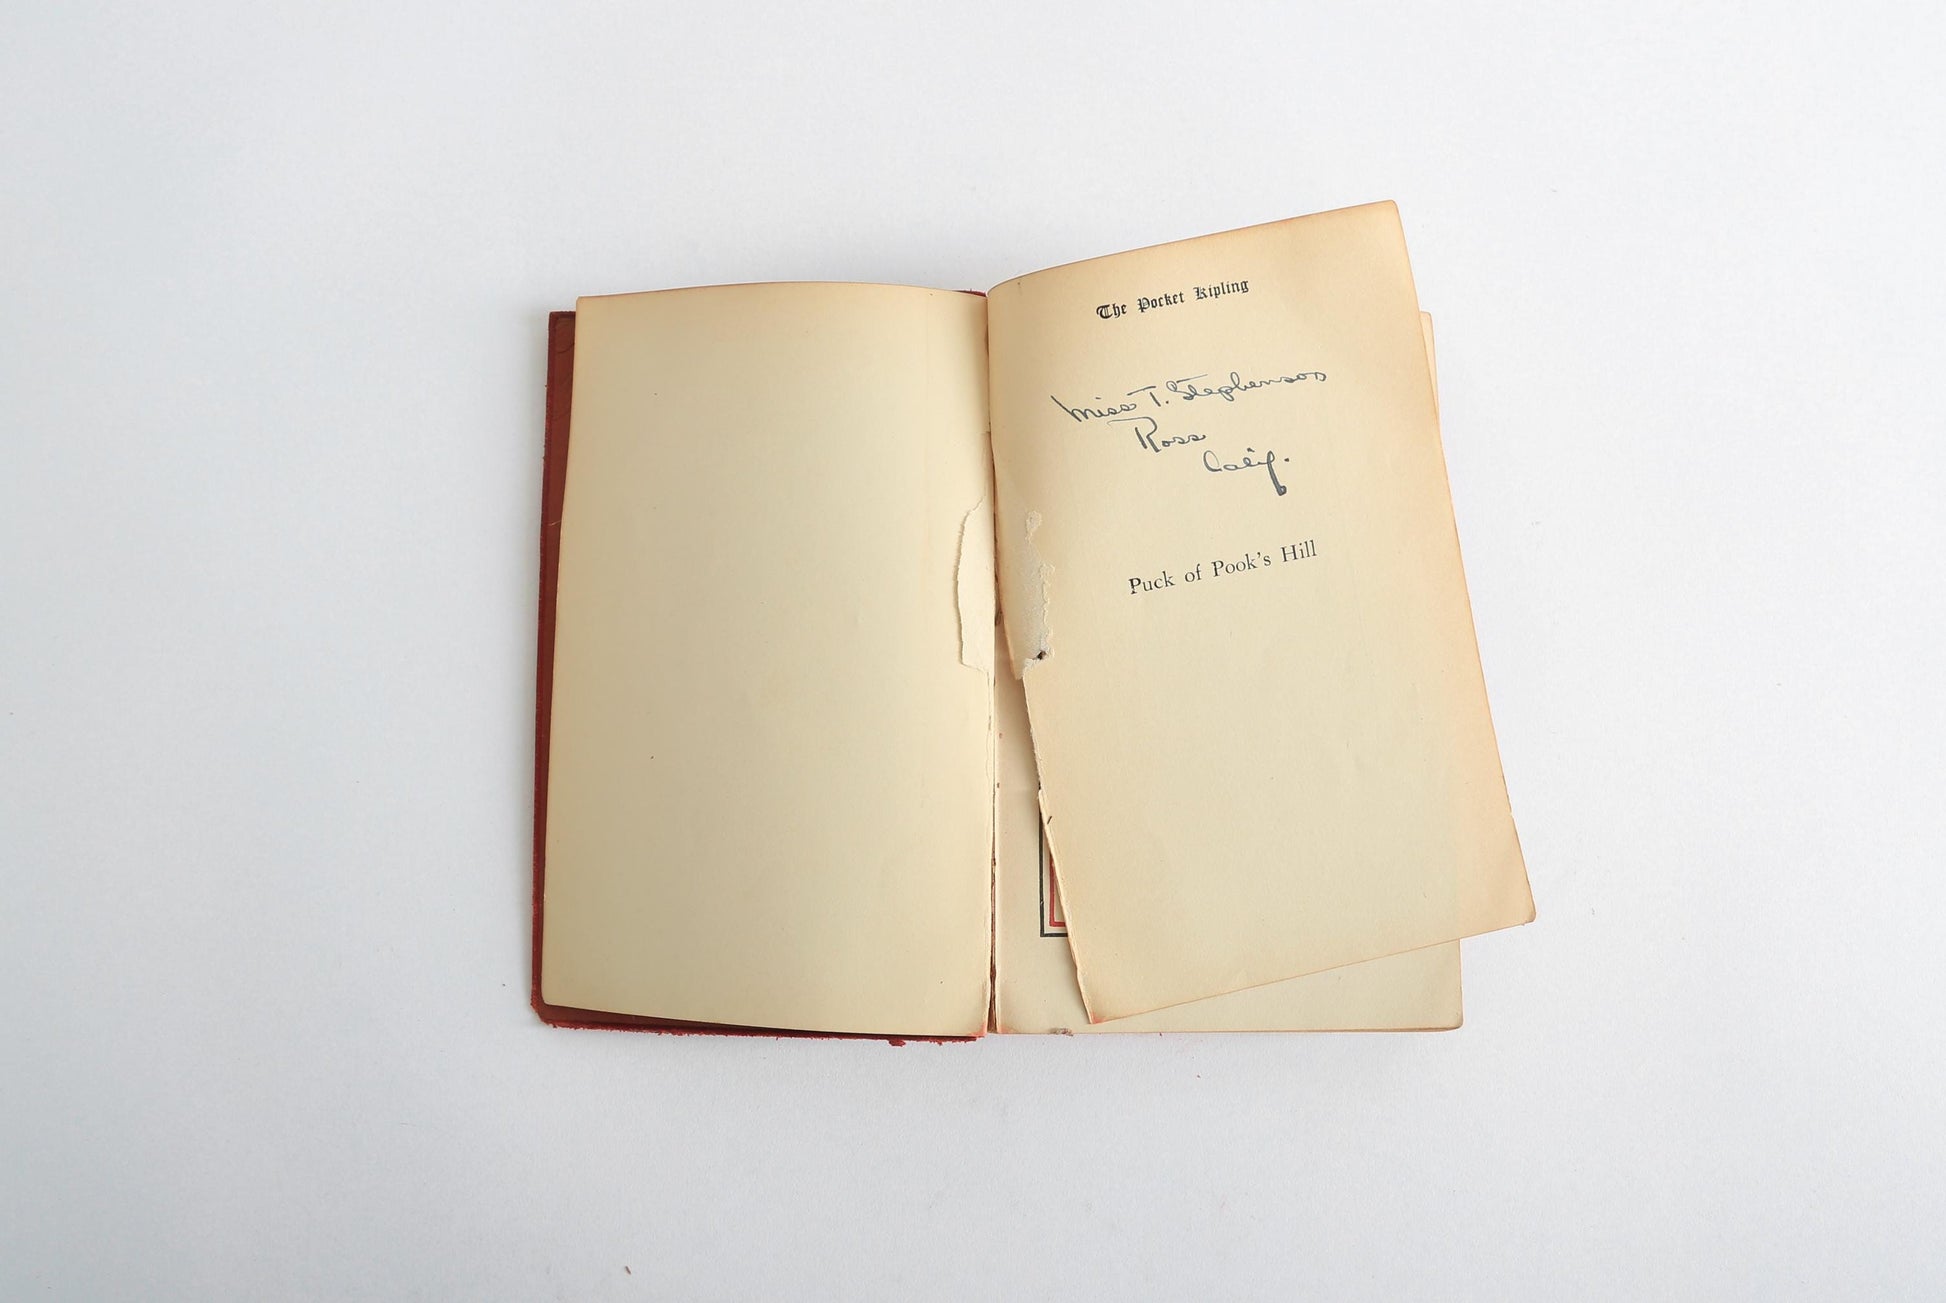 The Pocket Kipling
Miss T. Stephenson
Ross
Calif.
Puck of Pook's Hill